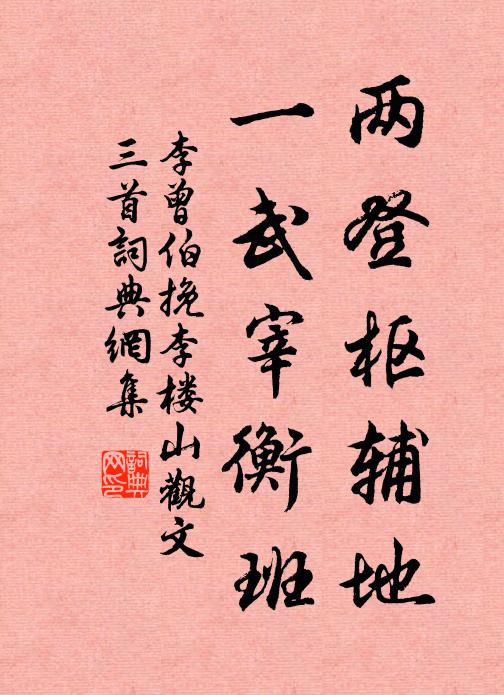 两登枢辅地
一武宰衡班
李曾伯挽李楼山觀文
三首詞典網集
詞典
网印